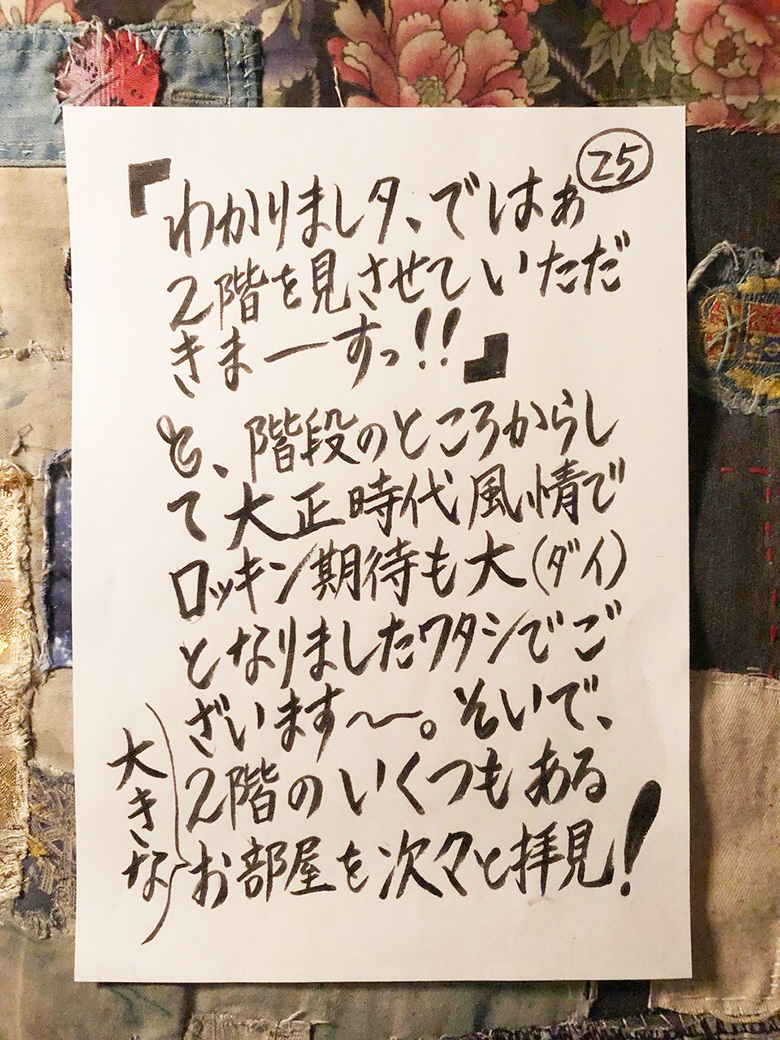 25
『わかりましタ、ではぁ
2階を見させていただ
きまーすっ!!』
と、階段のところからし
て大正時代風情で
ロッキン期待も大(ダイ)
となりましたワタシでご
ざいます〜。そいで、
2階のいくつもある
大きな
お部屋を次々と拝見!